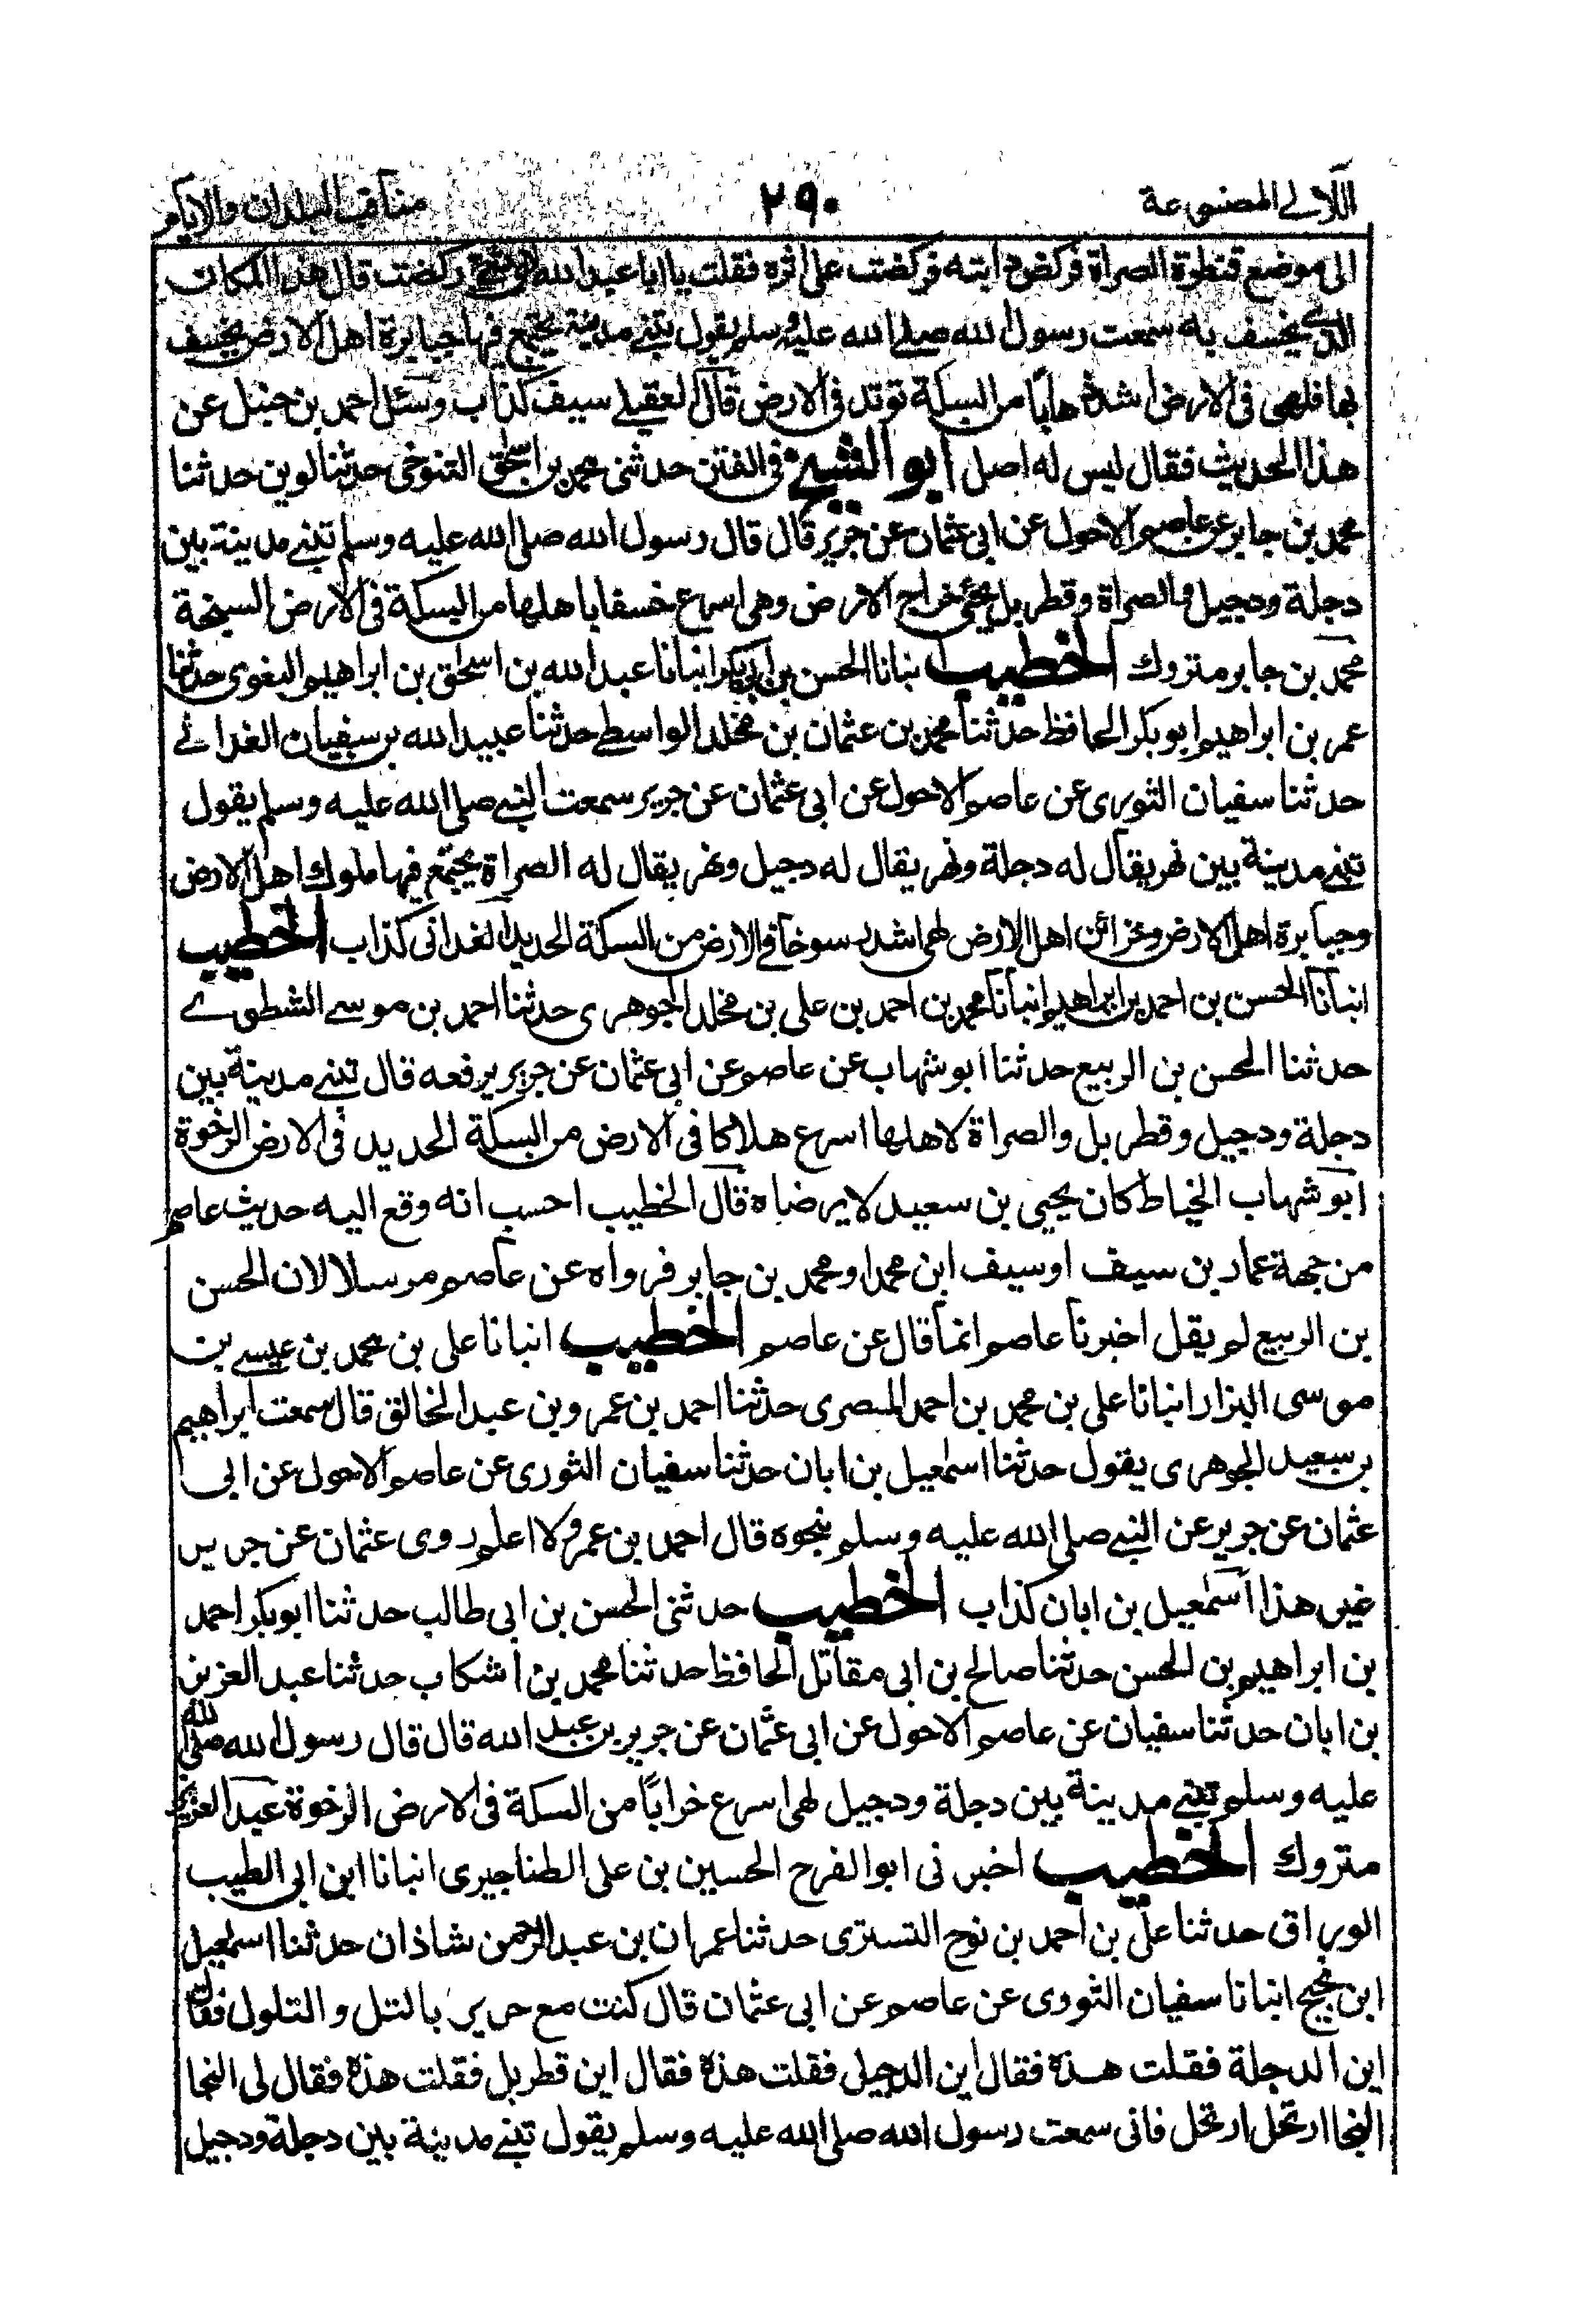 اللآلى المصنوعة ٢٩٠ مناقب البلدان والايام
الى موضع قنطرة الصراة فركض دابته فركضت على اثره فقلت يا ابا عبد الله لاى شئ ركضت قال هذا المكان
الذى يخسف به سمعت رسول الله صلى الله عليه وسلم يقول تبنى مدينة يجتمع فيها جبابرة اهل الارض يخسف
بها فلهى فى الارض اشد ذهابا من السكة توتد فى الارض قال العقيلى سيف كذاب وسئل احمد بن حنبل عن
هذا الحديث فقال ليس له اصل ابو الشيخ فى الفتن حدثنى محمد بن اسحق التنوخى حدثنا لوين حدثنا
محمد بن جابر عن عاصم الاحول عن ابى عثمان عن جرير قال قال رسول الله صلى الله عليه وسلم تبنى مدينة بين
دجلة ودجيل والصراة وقطربل يجئ خراج الارض وهى اسرع خسفا باهلها من السكة فى الارض السبخة
محمد بن جابر متروك الخطيب انبانا الحسن بن ابى بكر انبانا عبد الله بن اسحق بن ابراهيم البغوى حدثنا
عمر بن ابراهيم ابو بكر الحافظ حدثنا محمد بن عثمان بن مخلد الواسطى حدثنا عبيد الله بن سفيان الغدانى
حدثنا سفيان الثورى عن عاصم الاحول عن ابى عثمان عن جرير سمعت النبى صلى الله عليه وسلم يقول
تبنى مدينة بين نهر يقال له دجلة ونهر يقال له دجيل ونهر يقال له الصراة يجتمع فيها ملوك اهل الارض
وجبابرة اهل الارض وخزائن اهل الارض لهى اشد رسوخا فى الارض من السكة الحديد الغدانى كذاب الخطيب
انبانا الحسن بن احمد بن ابراهيم انبانا محمد بن احمد بن على بن مخلد الجوهرى حدثنا احمد بن موسى الشطوى
حدثنا الحسن بن الربيع حدثنا ابو شهاب عن عاصم عن ابى عثمان عن جرير يرفعه قال تبنى مدينة بين
دجلة ودجيل وقطربل والصراة لاهلها اسرع هلاكا فى الارض من السكة الحديد فى الارض الرخوة
ابو شهاب الخياط كان يحيى بن سعيد لا يرضاه قال الخطيب احسب انه وقع اليه حديث عاصم
من جهة عمار بن سيف او سيف ابن محمد او محمد بن جابر فرواه عن عاصم مرسلا لان الحسن
بن الربيع لم يقل اخبرنا عاصم انما قال عن عاصم الخطيب انبانا على بن محمد بن عيسى بن
موسى البزار انبانا على بن محمد بن احمد المصرى حدثنا احمد بن عمرو بن عبد الخالق قال سمعت ابراهيم
بن سعيد الجوهرى يقول حدثنا اسمعيل بن ابان حدثنا سفيان الثورى عن عاصم الاحول عن ابى
عثمان عن جرير عن النبى صلى الله عليه وسلم بنحوه قال احمد بن عمرو لا اعلم روى عثمان عن جرير
غير هذا اسمعيل بن ابان كذاب الخطيب حدثنى الحسن بن ابى طالب حدثنا ابو بكر احمد
بن ابراهيم بن الحسن حدثنا صالح بن ابى مقاتل الحافظ حدثنا محمد بن اشكاب حدثنا عبد العزيز
بن ابان حدثنا سفيان عن عاصم الاحول عن ابى عثمان عن جرير بن عبد الله قال قال رسول الله صلى الله
عليه وسلم تبنى مدينة بين دجلة ودجيل لهى اسرع خرابا من السكة فى الارض الرخوة عبد العزيز
متروك الخطيب اخبرنى ابو الفرح الحسين بن على الطناجيرى انبانا ابن ابى الطيب
الوراق حدثنا على بن احمد بن نوح التسترى حدثنا عمران بن عبد الرحمن شاذان حدثنا اسمعيل
ابن نجيح انبانا سفيان الثورى عن عاصم عن ابى عثمان قال كنت مع جرير بالتل والتلول فقال
اين الدجلة فقلت هذه فقال اين الدجيل فقلت هذه فقال اين قطربل فقلت هذه فقال لى النجا
النجا ارتحل ارتحل فانى سمعت رسول الله صلى الله عليه وسلم يقول تبنى مدينة بين دجلة ودجيل